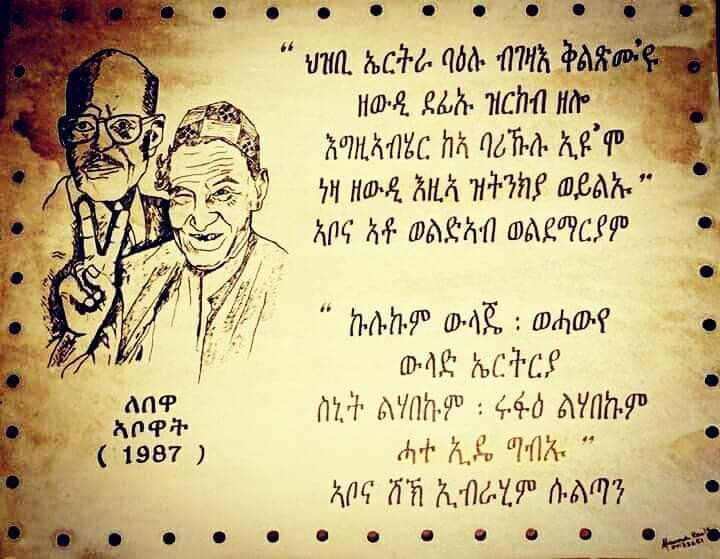 “ ህዝቢ ኤርትራ ባዕሉ ብገዛእ ቅልጽሙ'ዩ
ዘውዲ ደፊኡ ዝርከብ ዘሎ
እግዚኣብሄር ከኣ ባሪኹሉ ኢዩ'ሞ
ነዛ ዘውዲ እዚኣ ዝትንክያ ወይልኡ ”
ኣቦና ኣቶ ወልድኣብ ወልደማርያም
“ ኩሉኩም ውላጄ : ወሓውየ
ውላድ ኤርትርያ
ስኒት ልሃበኩም : ሩፋዕ ልሃበኩም
ሓተ ኢዴ ግብኡ ”
ኣቦና ሸኽ ኢብራሂም ሱልጣን
ለበዋ
ኣቦዋት
( 1987 )